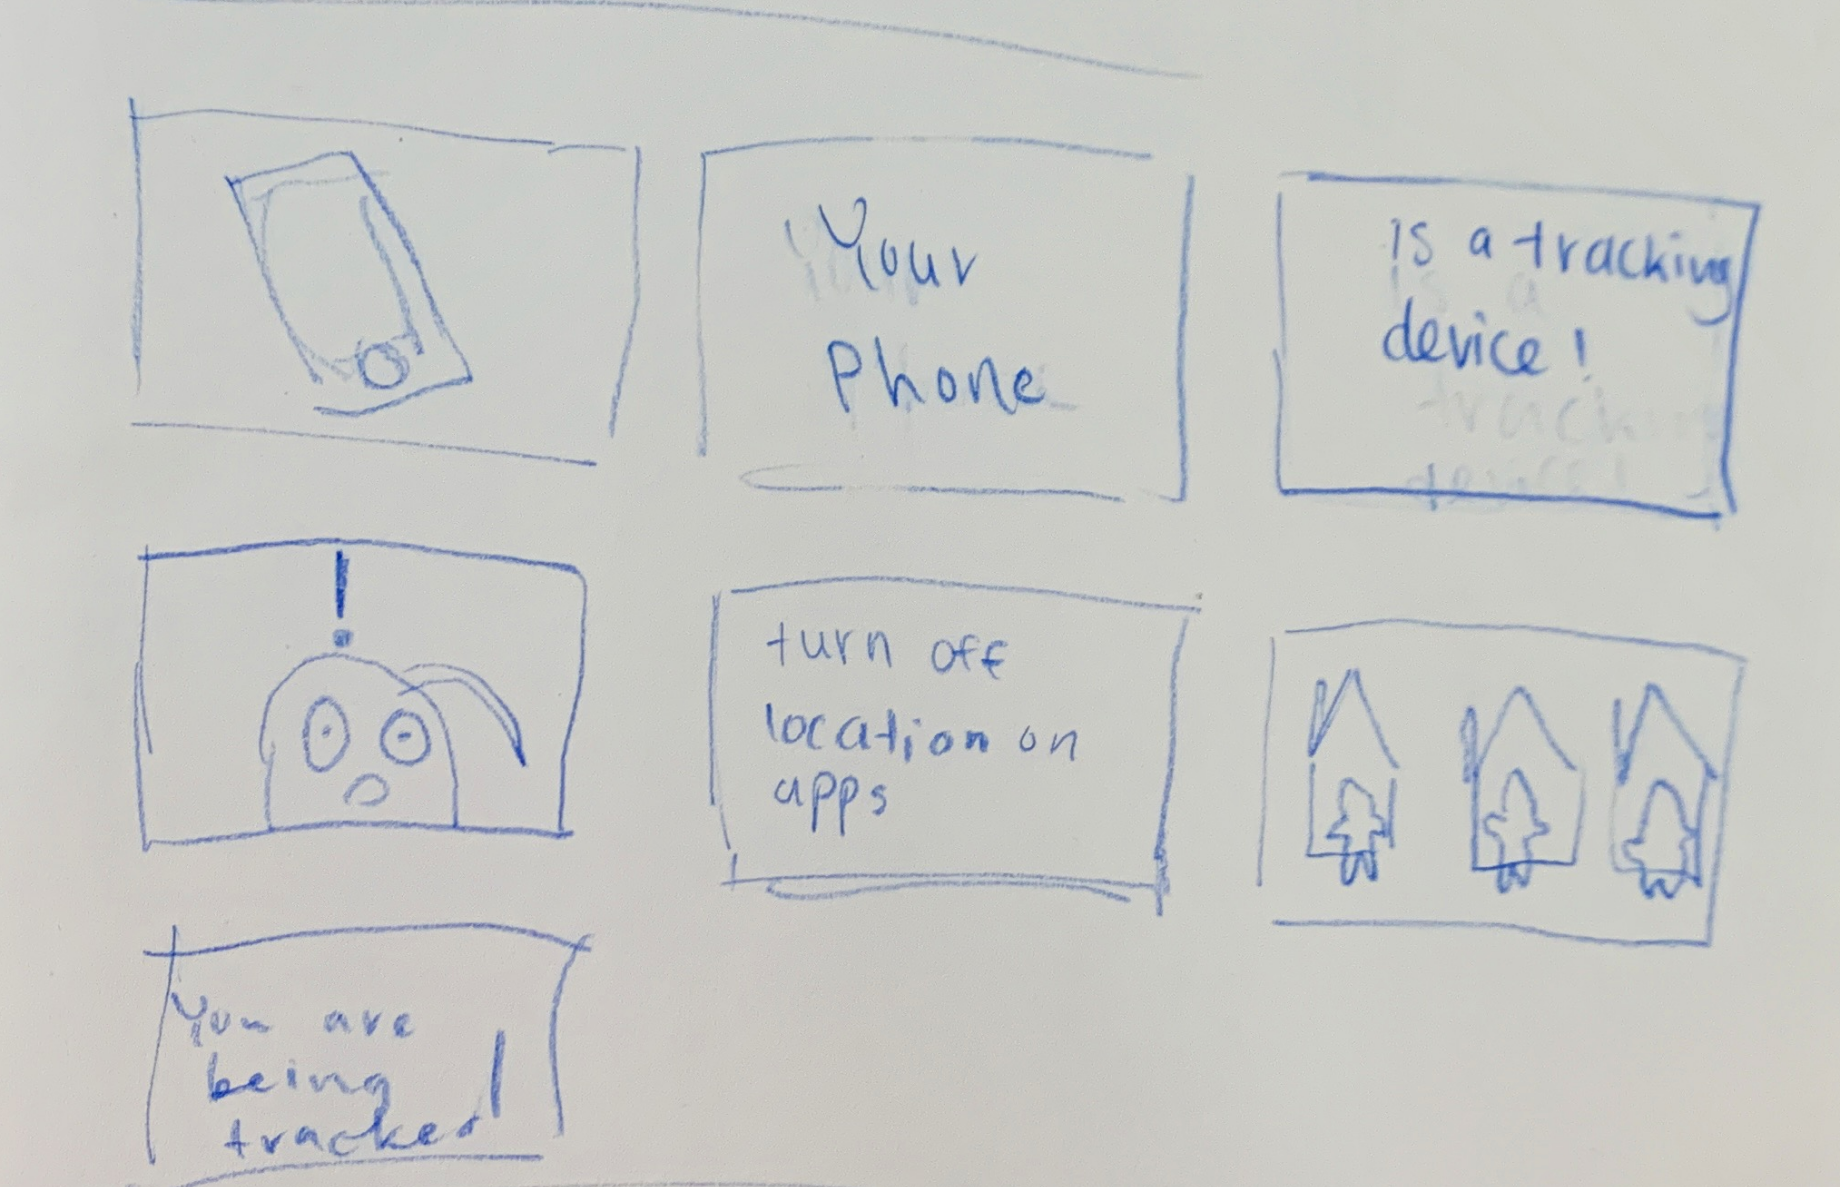 Your
Phone
is a tracking
device!
is a
tracking
device!
!
turn off
location on
apps
You are
being
tracked